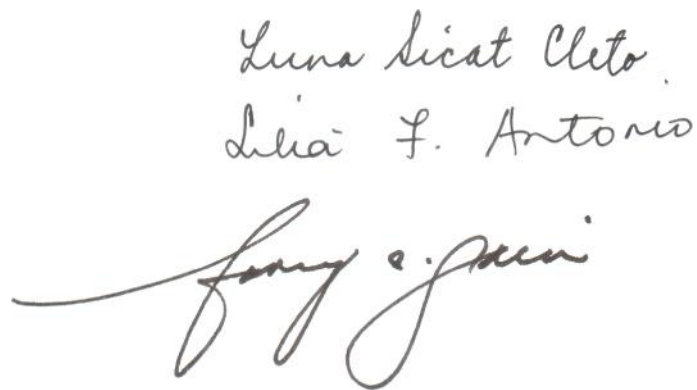 Luna Sicat Cleto
Lilia F. Antonio
Fanny